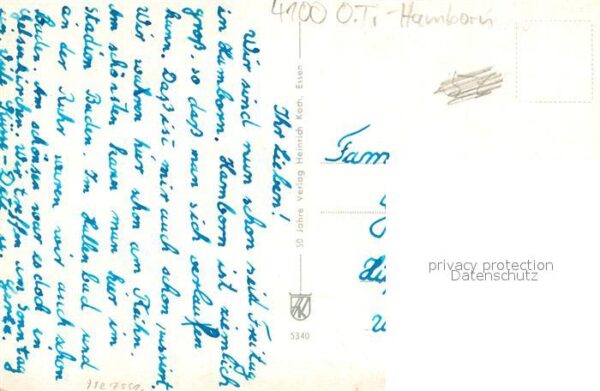 4100 O.T.-Hamborn
Ihr Lieben!
Wir sind nun schon seid Freitag
in Hamborn. Hamborn ist ziemlich
groß, so daß man sich verlaufen
kann. Daß ist mir auch schon passiert.
Wir waren hier schon am Rhein.
Am schönsten kann man hier im
Stadion Baden. Im Hallenbad und
an der Ruhr waren wir auch schon
Baden. Am schönsten war es doch in
Gelsenkirchen. Wir treffen am Sonntag
ein. Viele Grüße
50 Jahre Verlag Heinrich Koch, Essen
HK
5340
Fam
privacy protection
Datenschutz